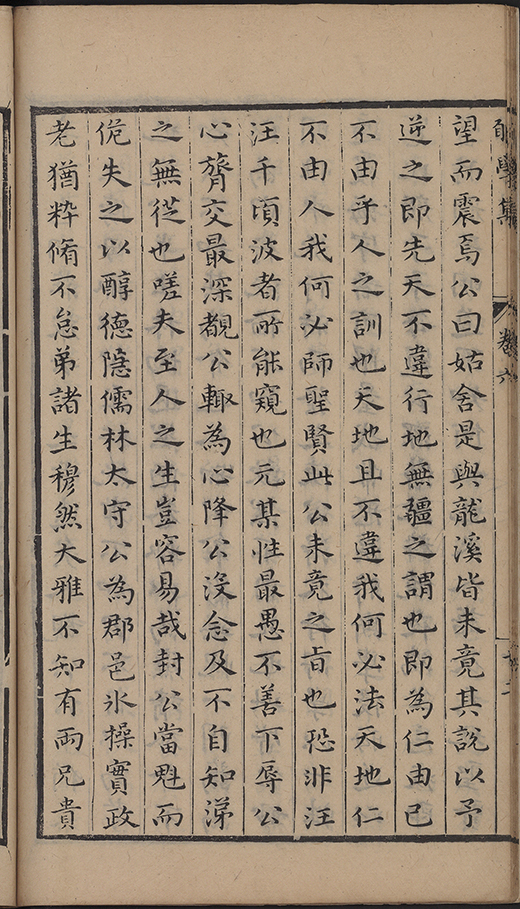 學集
卷六
望而震焉公曰姑舍是與龍溪皆未竟其說以予
逆之即先天不違行地無疆之謂也即為仁由己
不由乎人之訓也天地且不違我何必法天地仁
不由人我何必師聖賢此公未竟之旨也恐非汪
汪千頃波者所能窺也元某性最愚不善下辱公
心膂交最深覩公輙為心降公沒念及不自知涕
之無從也嗟夫至人之生豈容易哉封公當魁而
佹失之以醇德隱儒林太守公為郡邑氷操實政
老猶粹脩不怠弟諸生穆然大雅不知有兩兄貴